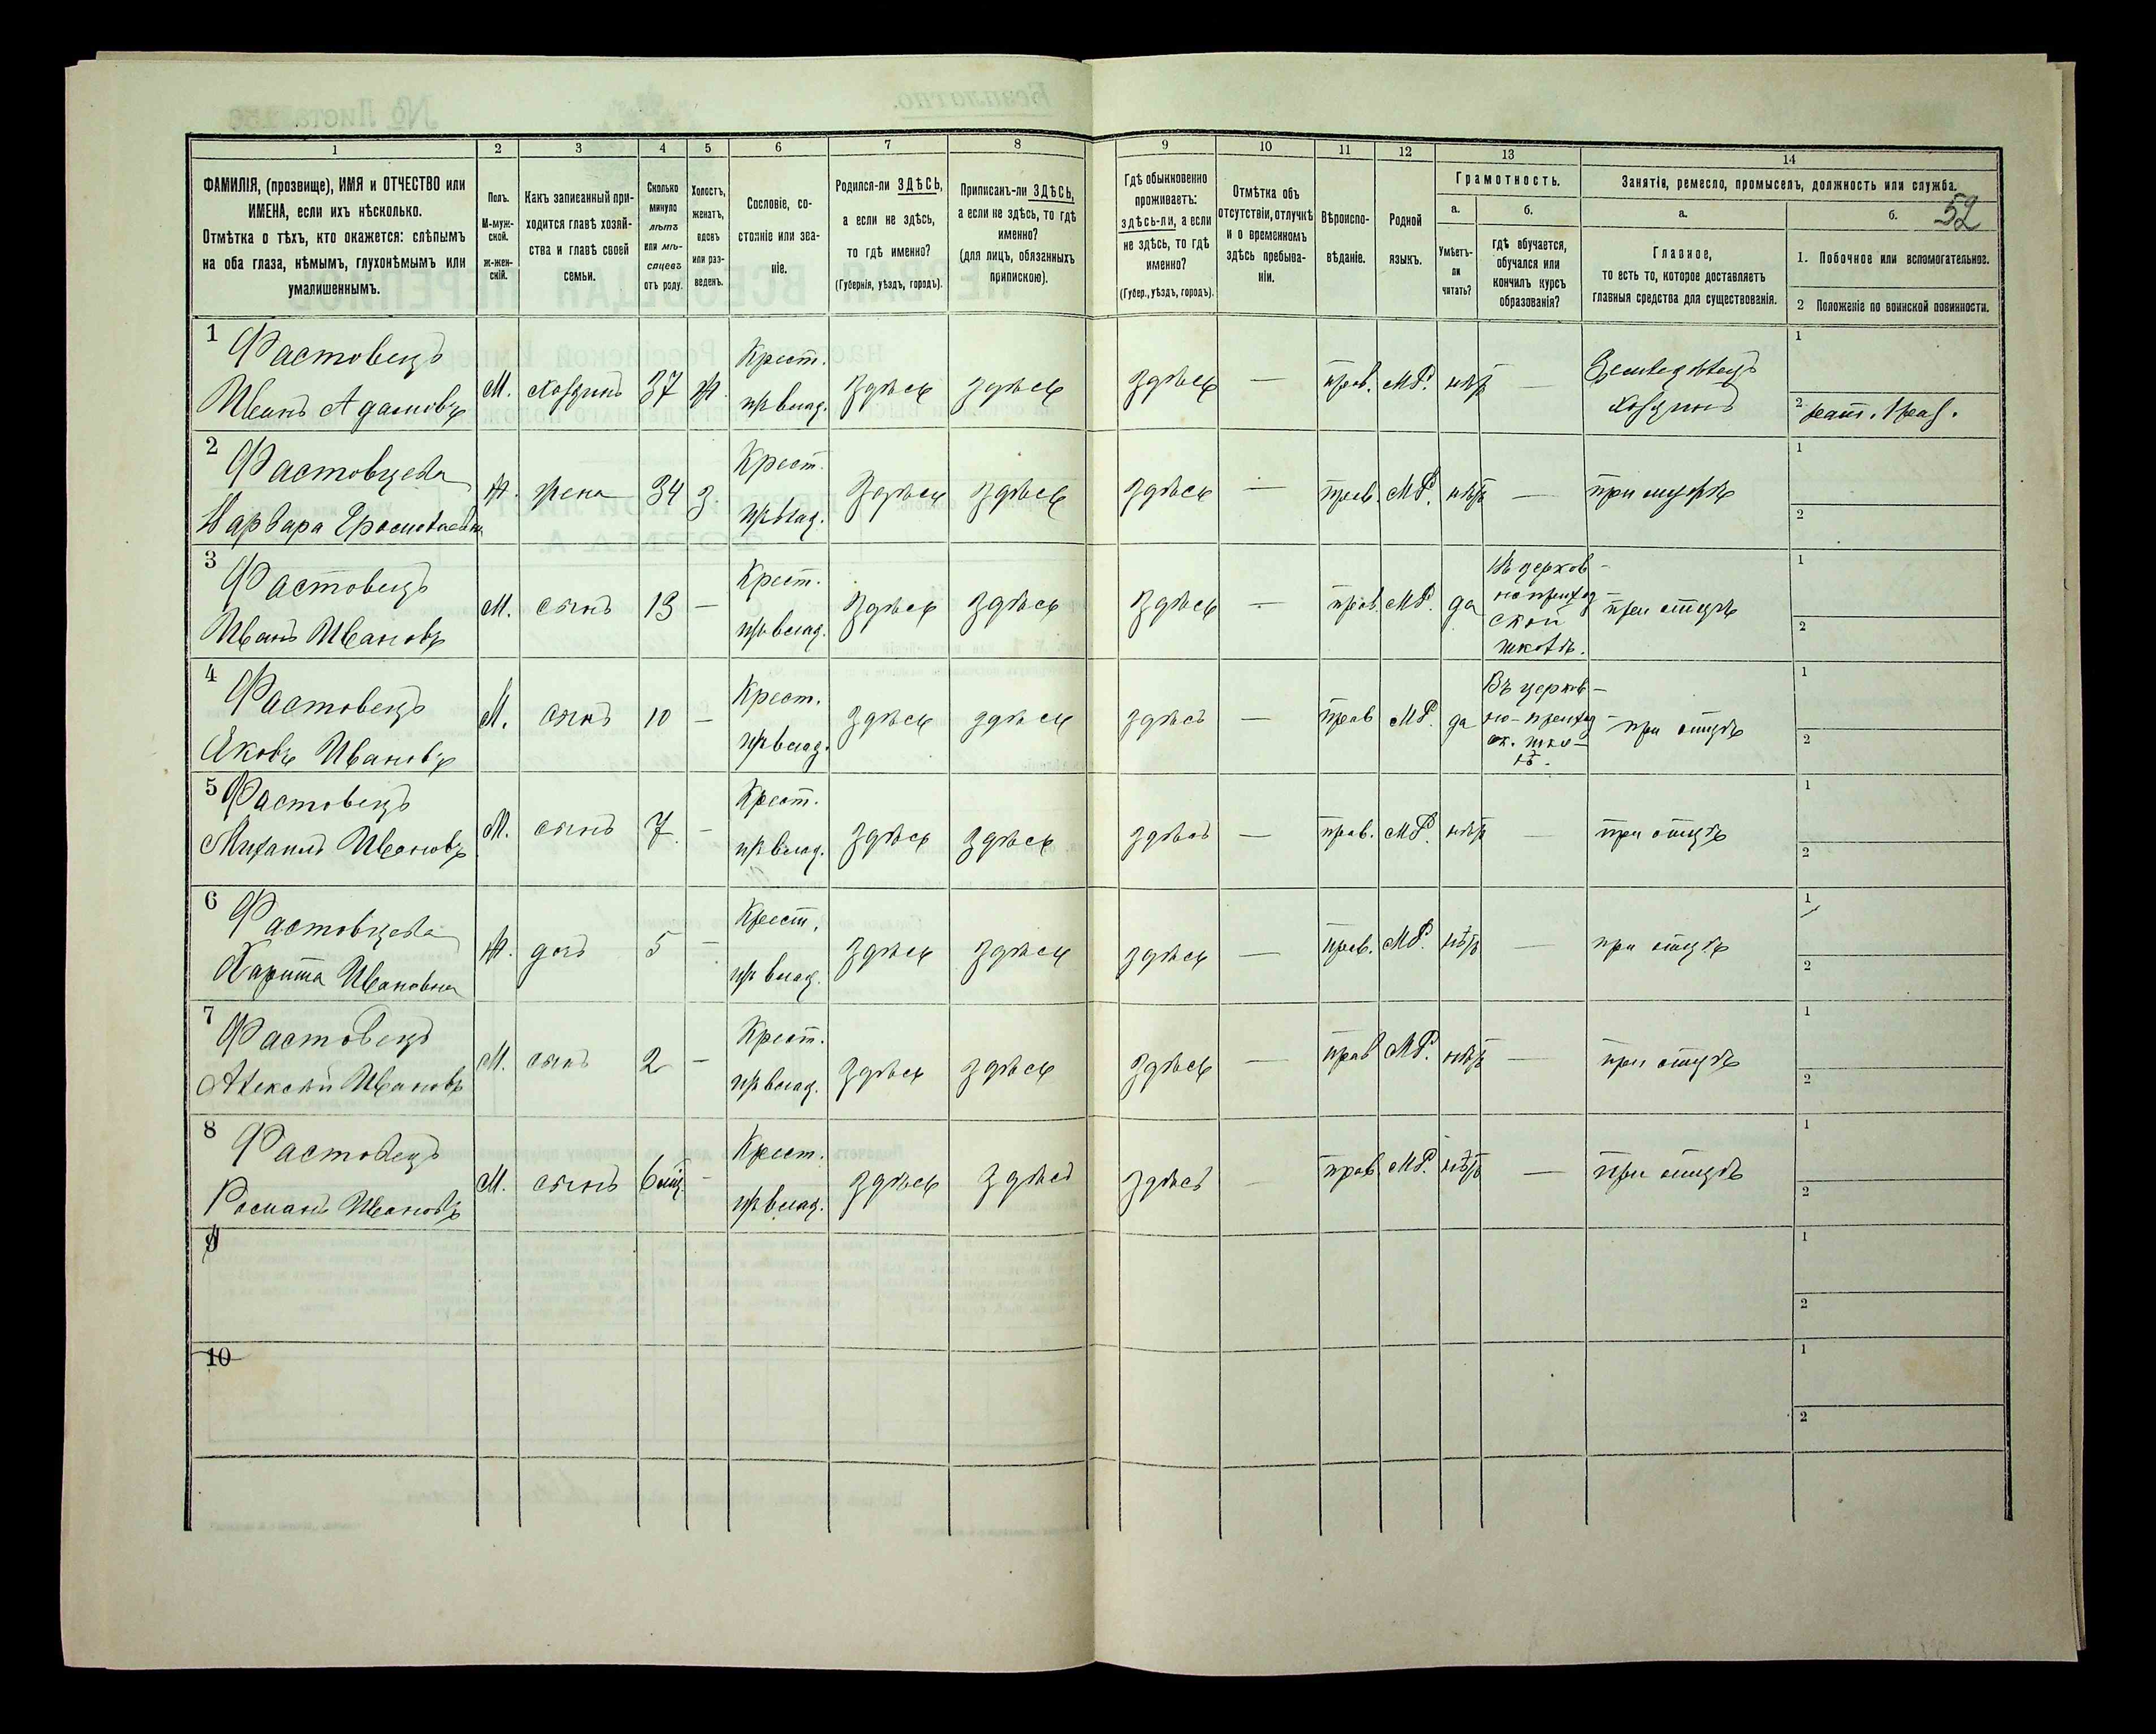 1 2 3 4 5 6 7 8 9 10 11 12 13 14
ФАМИЛІЯ, (прозвище), ИМЯ и ОТЧЕСТВО или
ИМЕНА, если ихъ нѣсколько.
Отмѣтка о тѣхъ, кто окажется: слѣпымъ
на оба глаза, нѣмымъ, глухонѣмымъ или
умалишеннымъ.
Полъ.
М-муж-
ской.
ж-жен-
скій.
Какъ записанный при-
ходится главѣ хозяй-
ства и главѣ своей
семьи.
Сколько
минуло
лѣтъ
или мѣ-
сяцевъ
отъ роду.
Холостъ,
женатъ,
вдовъ
или раз-
веденъ.
Сословіе, со-
стояніе или зва-
ніе.
Родился-ли ЗДѢСЬ,
а если не здѣсь,
то гдѣ именно?
(Губернія, уѣздъ, городъ).
Приписанъ-ли ЗДѢСЬ,
а если не здѣсь, то гдѣ
именно?
(для лицъ, обязанныхъ
припискою).
Гдѣ обыкновенно
проживаетъ:
здѣсь-ли, а если
не здѣсь, то гдѣ
именно?
(Губер., уѣздъ, городъ).
Отмѣтка объ
отсутствіи, отлучкѣ
и о временномъ
здѣсь пребыва-
ніи.
Вѣроиспо-
вѣданіе.
Родной
языкъ.
Грамотность.
а.
Умѣетъ-
ли
читать?
б.
гдѣ обучается,
обучался или
кончилъ курсъ
образованія?
Занятіе, ремесло, промыселъ, должность или служба.
а.
Главное,
то есть то, которое доставляетъ
главныя средства для существованія.
б. 52
1. Побочное или вспомогательное.
2 Положеніе по воинской повинности.
1 Фастовецъ
Иванъ Адамовъ
М. хозяинъ 37 ж.
Крест.
пр влад.
здѣсь здѣсь здѣсь — прав. МР. нѣтъ —
Земледѣлецъ
хозяинъ
1
2
2 Фастовцева
Варвара
ж. жена 34 з.
Крест.
пр влад.
здѣсь здѣсь здѣсь — прав. МР. нѣтъ — при мужѣ
1
2
3 Фастовецъ
Иванъ Ивановъ
М. сынъ 13 —
Крест.
пр влад.
здѣсь здѣсь здѣсь — прав. МР. да
Въ церков-
но приход-
ской
школѣ.
при отцѣ
1
2
4 Фастовецъ
Яковъ Ивановъ
М. сынъ 10 —
Крест.
пр влад.
здѣсь здѣсь здѣсь — прав МР. да
Въ церков-
но-приход-
ск. шко-
лѣ.
при отцѣ
1
2
5 Фастовецъ
Михаилъ Ивановъ
М. сынъ 7 —
Крест.
пр влад.
здѣсь здѣсь здѣсь — прав. МР. нѣтъ — при отцѣ
1
2
6 Фастовцева
Харита Ивановна
ж. дочь 5 —
Крест.
пр влад.
здѣсь здѣсь здѣсь — прав. МР. нѣтъ — при отцѣ
1
2
7 Фастовецъ
Алексѣй Ивановъ
М. сынъ 2 —
Крест.
пр влад.
здѣсь здѣсь здѣсь — прав МР. нѣтъ — при отцѣ
1
2
8 Фастовецъ
Романъ Ивановъ
М. сынъ 6 мѣс. —
Крест.
пр влад.
здѣсь здѣсь здѣсь — прав МР. нѣтъ — при отцѣ
1
2
9
1
2
10
1
2